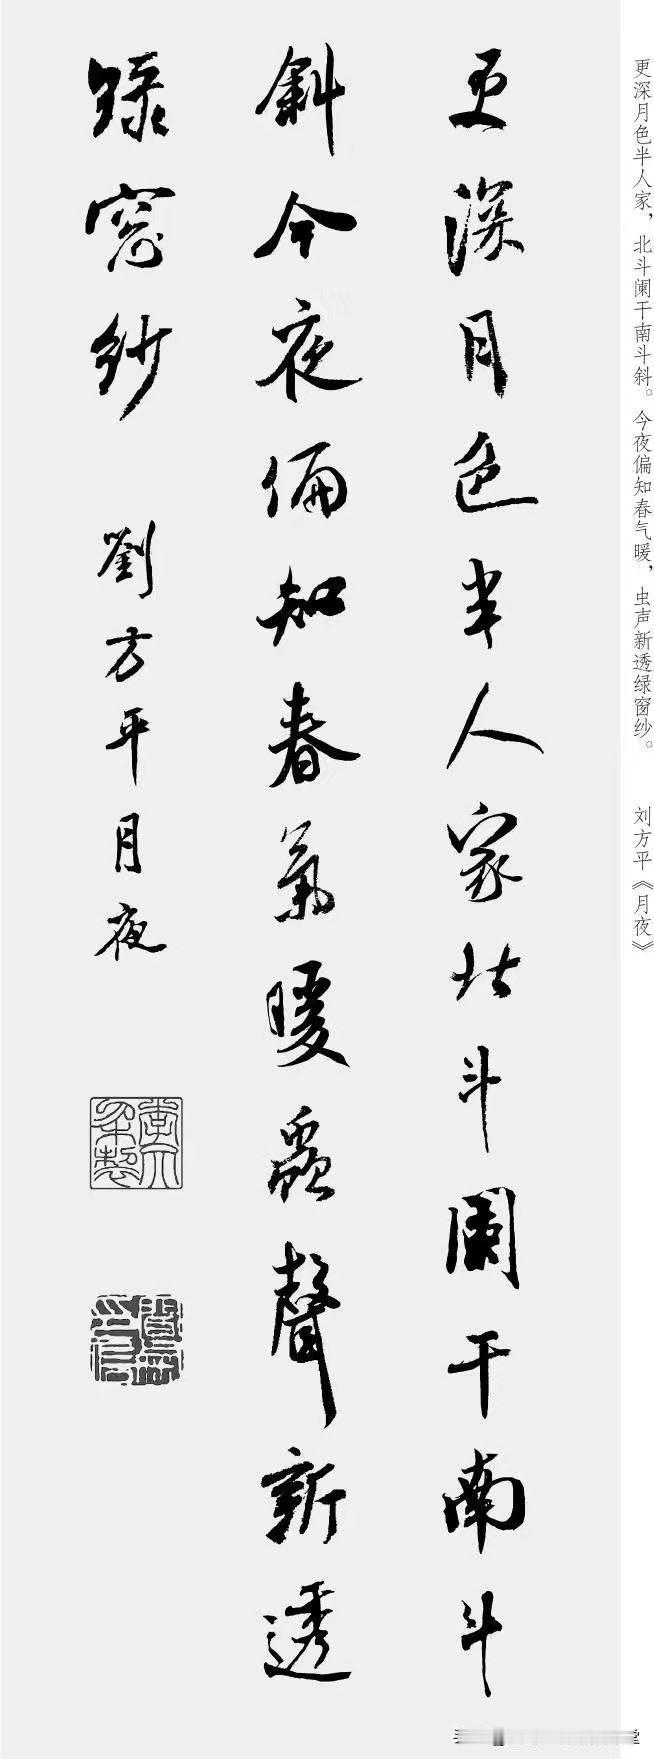 更深月色半人家，北斗阑干南斗斜。今夜偏知春气暖，虫声新透绿窗纱。 刘方平《月夜》
更深月色半人家北斗闌干南斗
斜今夜偏知春氣暖蟲聲新透
綠窗紗 劉方平月夜